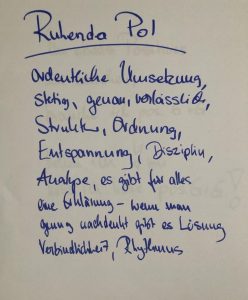 Ruhender Pol
ordentliche Umsetzung,
stetig, genau, verlässlich,
Struktur, Ordnung,
Entspannung, Disziplin,
Analyse, es gibt für alles
eine Erklärung - wenn man
genug nachdenkt gibt es Lösung
Verbindlichkeit, Rhythmus